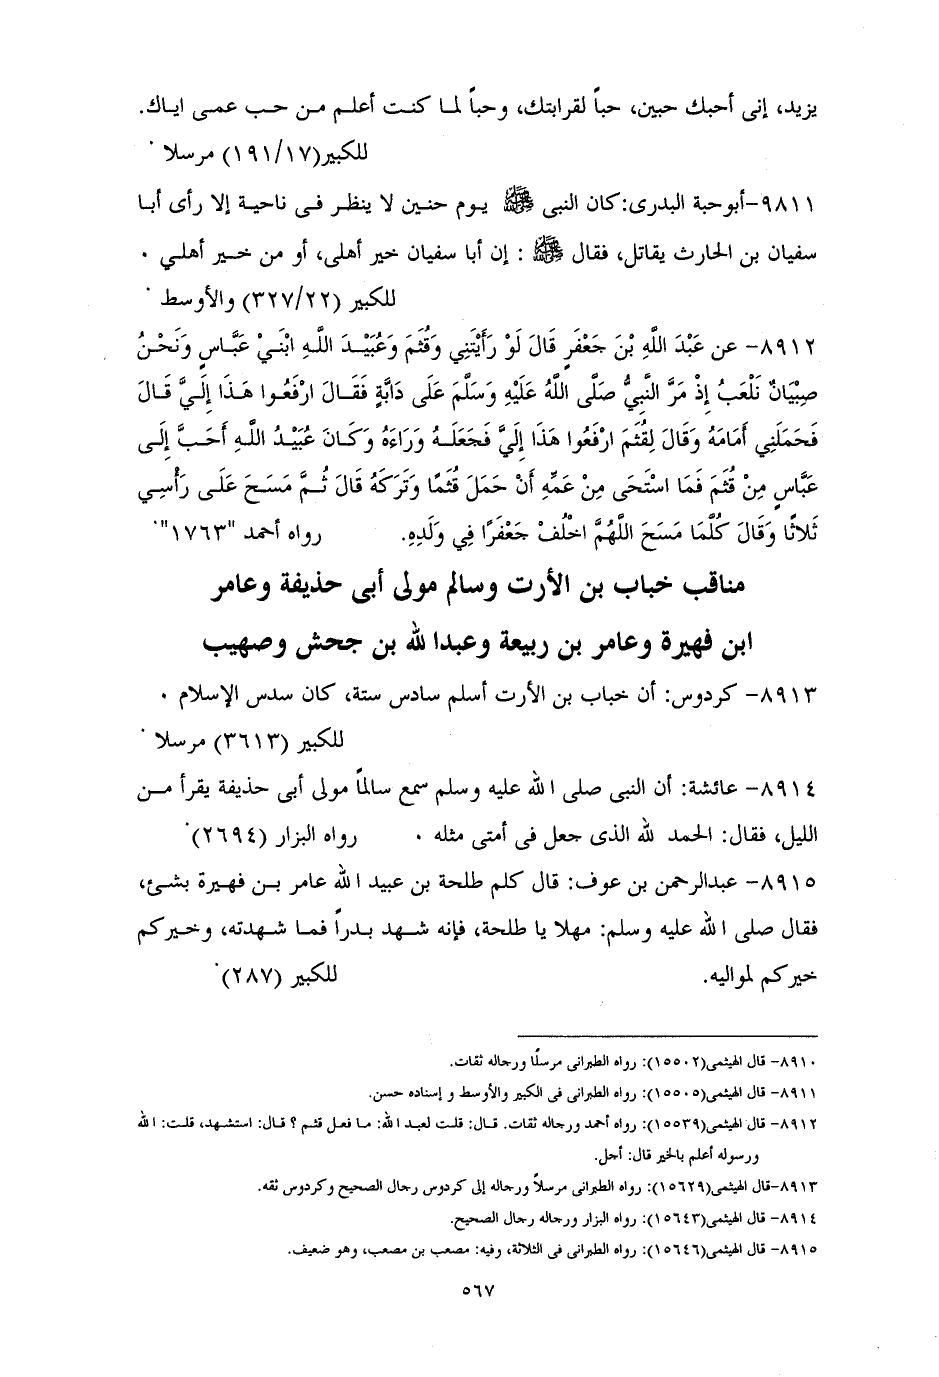 يزيد، إنى أحبك حبين، حباً لقرابتك، وحباً لما كنت أعلم من حب عمى اياك.
للكبير(١٩١/١٧) مرسلا
٩٨١١-أبوحبة البدرى:كان النبى ﷺ يوم حنين لا ينظر فى ناحية إلا رأى أبا
سفيان بن الحارث يقاتل، فقال ﷺ : إن أبا سفيان خير أهلى، أو من خير أهلي ٠
للكبير (٣٢٧/٢٢) والأوسط
٨٩١٢- عن عَبْدَ اللَّهِ بْنَ جَعْفَرٍ قَالَ لَوْ رَأَيْتَنِي وَقُثَمَ وَعُبَيْدَ اللَّهِ ابْنَيْ عَبَّاسٍ وَنَحْنُ
صِبْيَانٌ نَلْعَبُ إِذْ مَرَّ النَّبِيُّ صَلَّى اللَّهُ عَلَيْهِ وَسَلَّمَ عَلَى دَابَّةٍ فَقَالَ ارْفَعُوا هَذَا إِلَيَّ قَالَ
فَحَمَلَنِي أَمَامَهُ وَقَالَ لِقُثَمَ ارْفَعُوا هَذَا إِلَيَّ فَجَعَلَهُ وَرَاءَهُ وَكَانَ عُبَيْدُ اللَّهِ أَحَبَّ إِلَى
عَبَّاسٍ مِنْ قُثَمَ فَمَا اسْتَحَى مِنْ عَمِّهِ أَنْ حَمَلَ قُثَمًا وَتَرَكَهُ قَالَ ثُمَّ مَسَحَ عَلَى رَأْسِي
ثَلَاثًا وَقَالَ كُلَّمَا مَسَحَ اللَّهُمَّ اخْلُفْ جَعْفَرًا فِي وَلَدِهِ. رواه أحمد "١٧٦٣"
مناقب خباب بن الأرت وسالم مولى أبى حذيفة وعامر
ابن فهيرة وعامر بن ربيعة وعبدا لله بن جحش وصهيب
٨٩١٣- كردوس: أن خباب بن الأرت أسلم سادس ستة، كان سدس الإسلام ٠
للكبير (٣٦١٣) مرسلا
٨٩١٤- عائشة: أن النبى صلى ا لله عليه وسلم سمع سالماً مولى أبى حذيفة يقرأ من
الليل، فقال: الحمد لله الذى جعل فى أمتى مثله ٠ رواه البزار (٢٦٩٤)
٨٩١٥- عبدالرحمن بن عوف: قال كلم طلحة بن عبيد ا لله عامر بن فهيرة بشئ،
فقال صلى ا لله عليه وسلم: مهلا يا طلحة، فإنه شهد بدراً فما شهدته، وخيركم
خيركم لمواليه. للكبير (٢٨٧)
٨٩١٠- قال الهيثمى(١٥٥٠٢): رواه الطبرانى مرسلًا ورجاله ثقات.
٨٩١١- قال الهيثمى(١٥٥٠٥): رواه الطبرانى فى الكبير والأوسط و إسناده حسن.
٨٩١٢- قال الهيثمى(١٥٥٣٩): رواه أحمد ورجاله ثقات. قال: قلت لعبد ا لله: ما فعل قثم ؟ قال: استشهد، قلت: ا لله
ورسوله أعلم بالخير قال: أجل.
٨٩١٣-قال الهيثمى(١٥٦٢٩): رواه الطبرانى مرسلاً ورجاله إلى كردوس رجال الصحيح وكردوس ثقه.
٨٩١٤- قال الهيثمى(١٥٦٤٣): رواه البزار ورجاله رجال الصحيح.
٨٩١٥- قال الهيثمى(١٥٦٤٦): رواه الطبرانى فى الثلاثة، وفيه: مصعب بن مصعب، وهو ضعيف.
٥٦٧